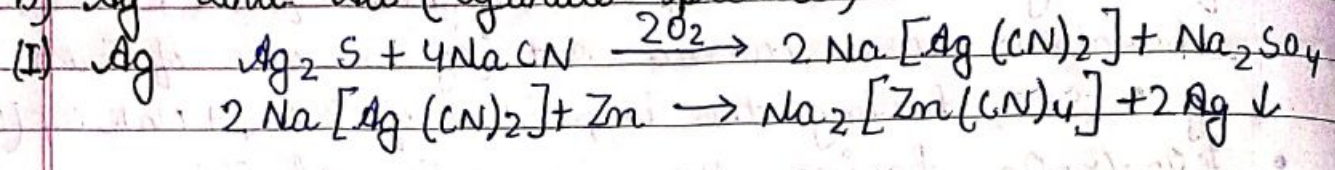 (I) Ag Ag₂ S + 4NaCN —2O₂→ 2 Na [Ag (CN)₂] + Na₂SO₄
2 Na [Ag (CN)₂] + Zn → Na₂ [Zn(CN)₄] + 2 Ag ↓